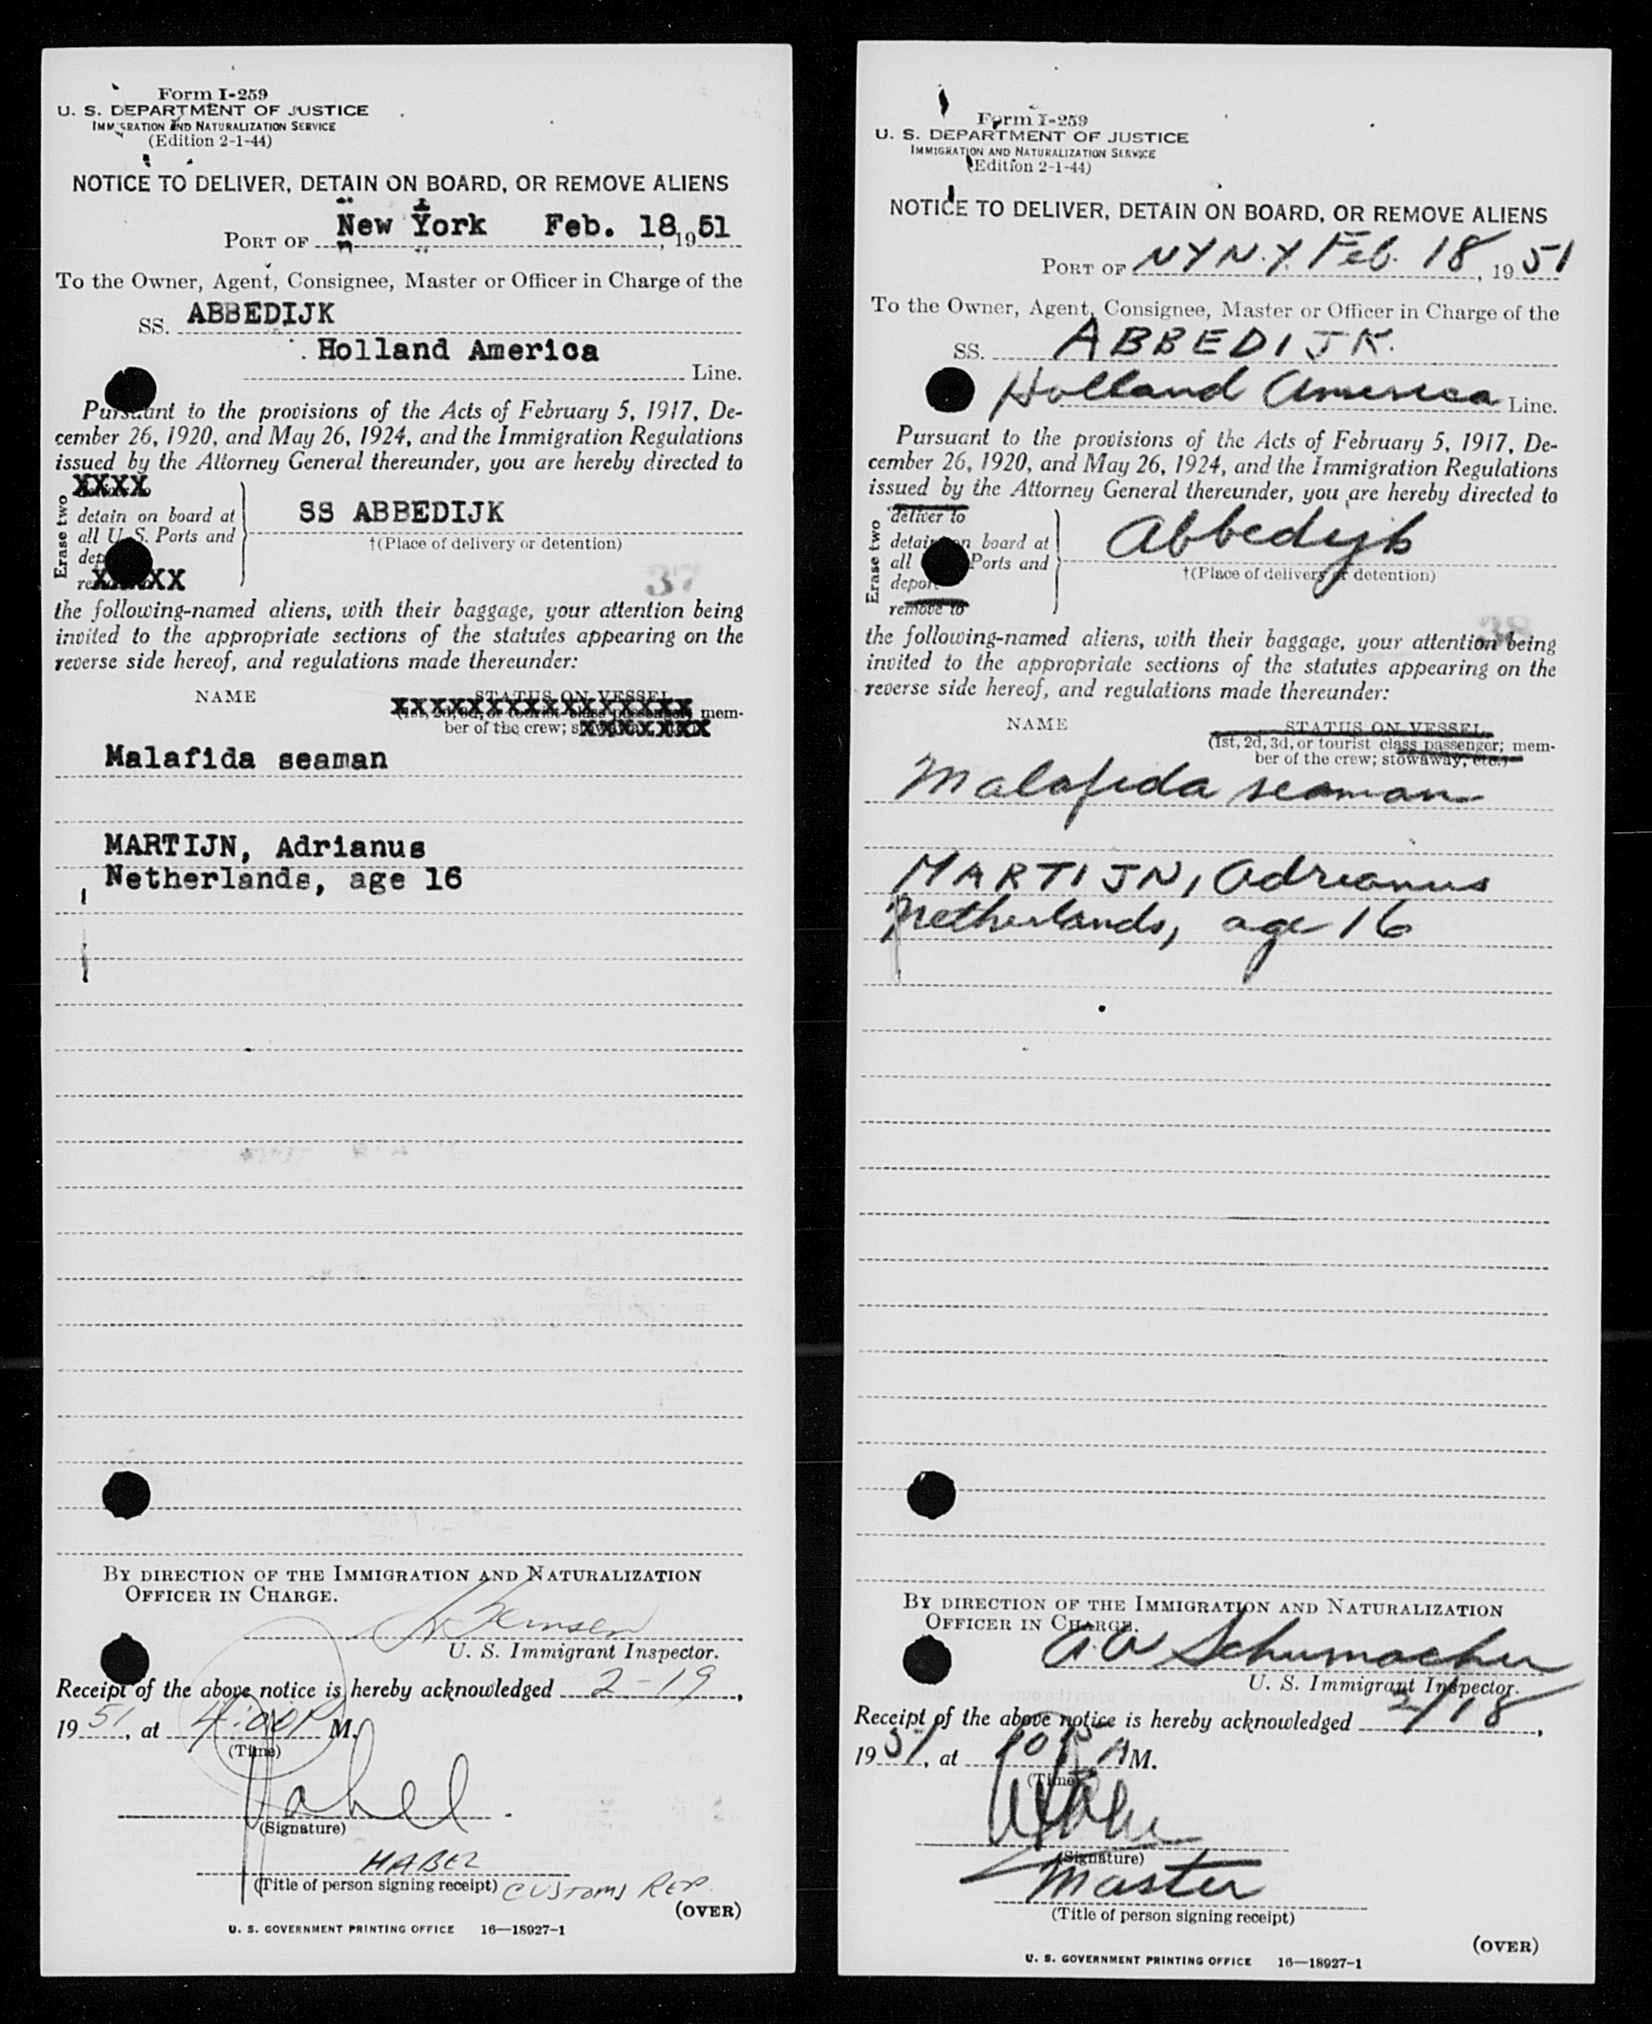 Form I-259
U. S. DEPARTMENT OF JUSTICE
IMMIGRATION AND NATURALIZATION SERVICE
(Edition 2-1-44)
NOTICE TO DELIVER, DETAIN ON BOARD, OR REMOVE ALIENS
PORT OF New York Feb. 18, 1951
To the Owner, Agent, Consignee, Master or Officer in Charge of the
SS. ABBEDIJK
Holland America
Line.
Pursuant to the provisions of the Acts of February 5, 1917, De-
cember 26, 1920, and May 26, 1924, and the Immigration Regulations
issued by the Attorney General thereunder, you are hereby directed to
XXXX
Erase two
detain on board at
all U. S. Ports and
dep
re XXXXX
SS ABBEDIJK
†(Place of delivery or detention)
37
the following-named aliens, with their baggage, your attention being
invited to the appropriate sections of the statutes appearing on the
reverse side hereof, and regulations made thereunder:
NAME
STATUS ON VESSEL
(1st, 2d, 3d, or tourist class passenger; mem-
ber of the crew; s XXXXXXX
Malafida seaman
MARTIJN, Adrianus
Netherlands, age 16
BY DIRECTION OF THE IMMIGRATION AND NATURALIZATION
OFFICER IN CHARGE.
U. S. Immigrant Inspector.
Receipt of the above notice is hereby acknowledged 2-19,
1951, at 4:00 P M.
(Time)
Habel
(Signature)
HABEL
(Title of person signing receipt) CUSTOMS REP.
(OVER)
U. S. GOVERNMENT PRINTING OFFICE 16—18927-1
Form I-259
U. S. DEPARTMENT OF JUSTICE
IMMIGRATION AND NATURALIZATION SERVICE
(Edition 2-1-44)
NOTICE TO DELIVER, DETAIN ON BOARD, OR REMOVE ALIENS
PORT OF NY N.Y. Feb. 18, 1951
To the Owner, Agent, Consignee, Master or Officer in Charge of the
SS. ABBEDIJK.
Holland America Line.
Pursuant to the provisions of the Acts of February 5, 1917, De-
cember 26, 1920, and May 26, 1924, and the Immigration Regulations
issued by the Attorney General thereunder, you are hereby directed to
Erase two
deliver to
detain on board at
all Ports and
deport
remove to
Abbedijk
†(Place of delivery or detention)
38
the following-named aliens, with their baggage, your attention being
invited to the appropriate sections of the statutes appearing on the
reverse side hereof, and regulations made thereunder:
NAME
STATUS ON VESSEL
(1st, 2d, 3d, or tourist class passenger; mem-
ber of the crew; stowaway, etc.)
Malafida seaman
MARTIJN, Adrianus
Netherlands, age 16
BY DIRECTION OF THE IMMIGRATION AND NATURALIZATION
OFFICER IN CHARGE.
A W Schumacher
U. S. Immigrant Inspector.
Receipt of the above notice is hereby acknowledged 2/18,
1951, at A M.
(Time)
(Signature)
Master
(Title of person signing receipt)
(OVER)
U. S. GOVERNMENT PRINTING OFFICE 16—18927-1